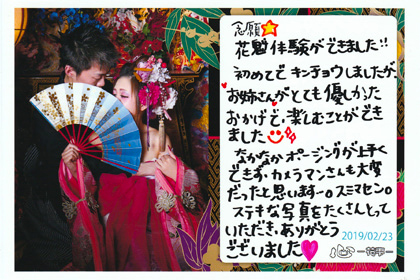 念願
花魁体験ができました!!
初めてで キンチョウしましたが、
お姉さんがとても優しかった
おかげで、楽しむことができ
ました
なかなかポージングが上手く
できず、カメラマンさんも大変
だったと思いますー。スミマセン。
ステキな写真をたくさんとって
いただき、ありがとう
ございました
2019/02/23
心